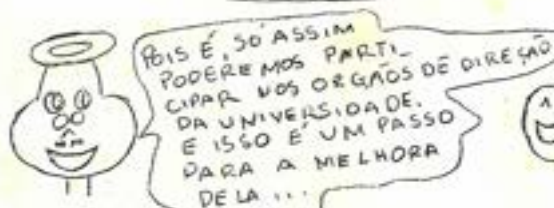 POIS É, SÓ ASSIM
PODEREMOS PARTI_
CIPAR NOS ORGÃOS DE DIREÇÃO
DA UNIVERSIDADE.
E ISSO É UM PASSO
PARA A MELHORA
DELA ...